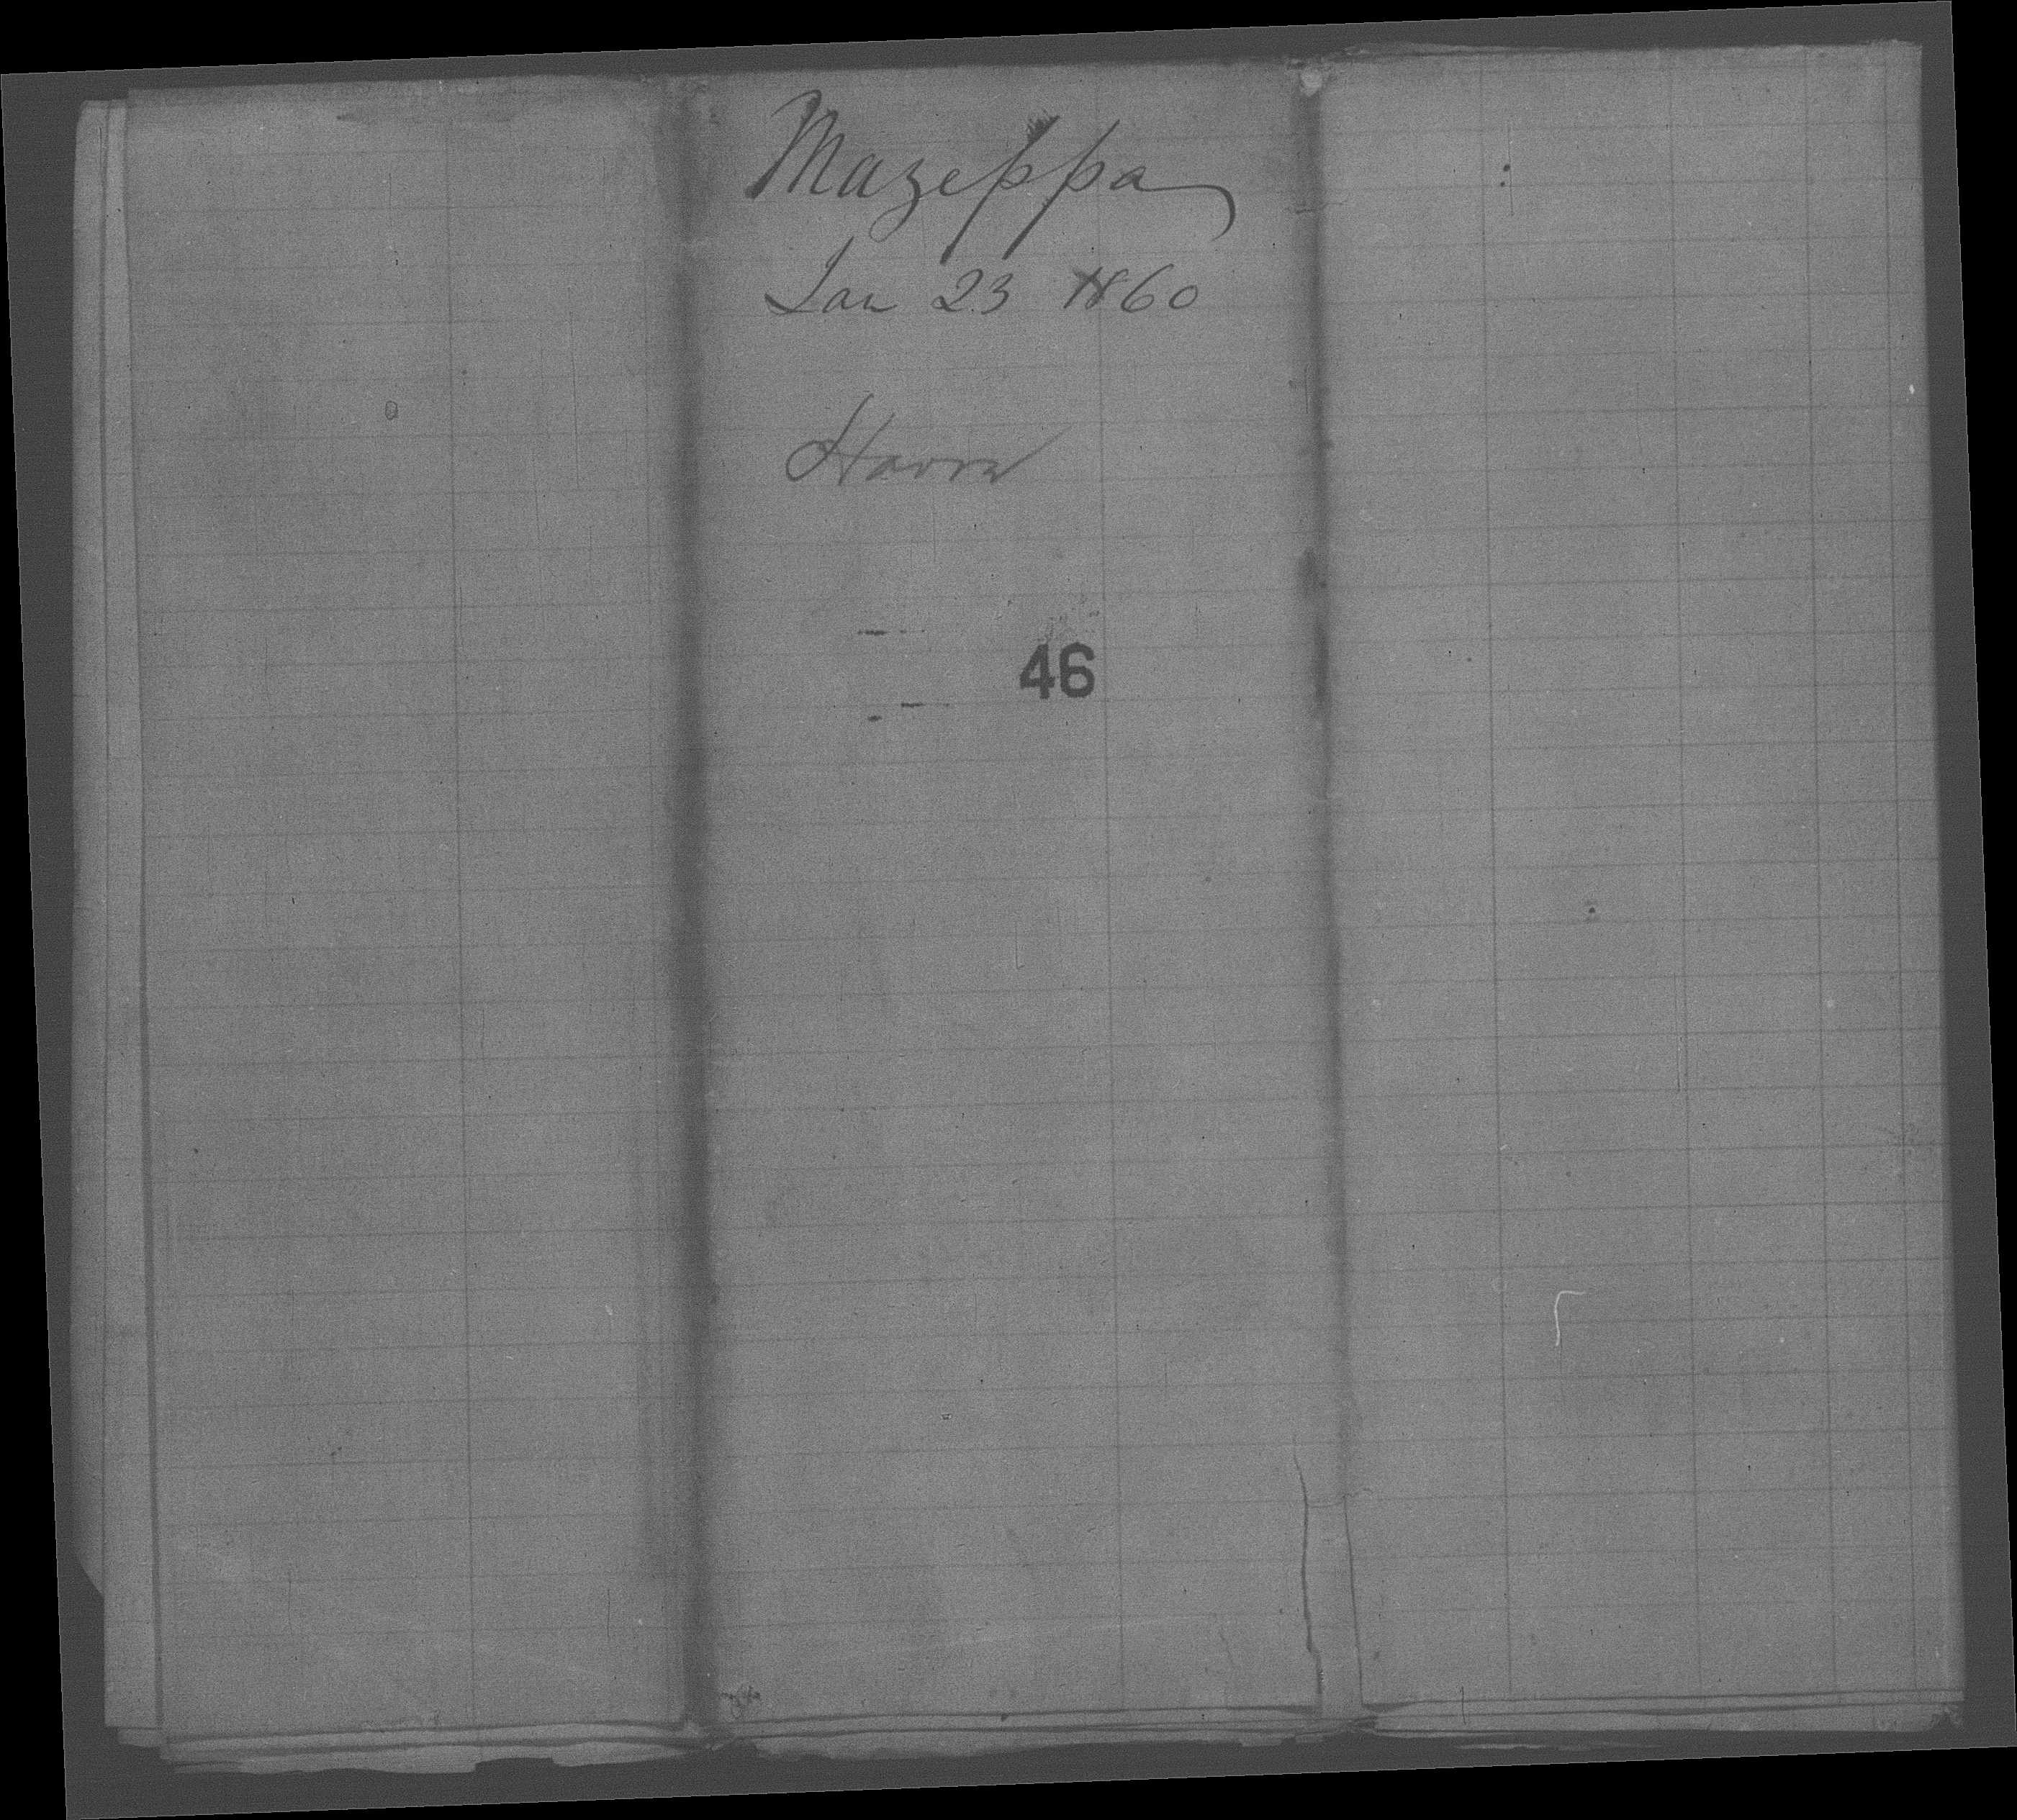 Mazeppa
Jan 23 1860
Havre
46